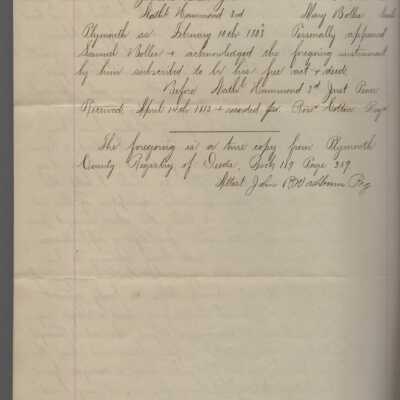 Nathl Hammond 2nd Mary Bolles
Plymouth ss February 10th Personally appeared
Samuel Bolles & acknowledged the foregoing instrument
by him subscribed to be his free act & deed.
Before Nathl Hammond 2d Just Peace
Received April 14th 1813 & recorded pr. Rossr Cotton Regr
The foregoing is a true copy from Plymouth
County Registry of Deeds. Book 119 Page 219
Attest John Washburn Reg